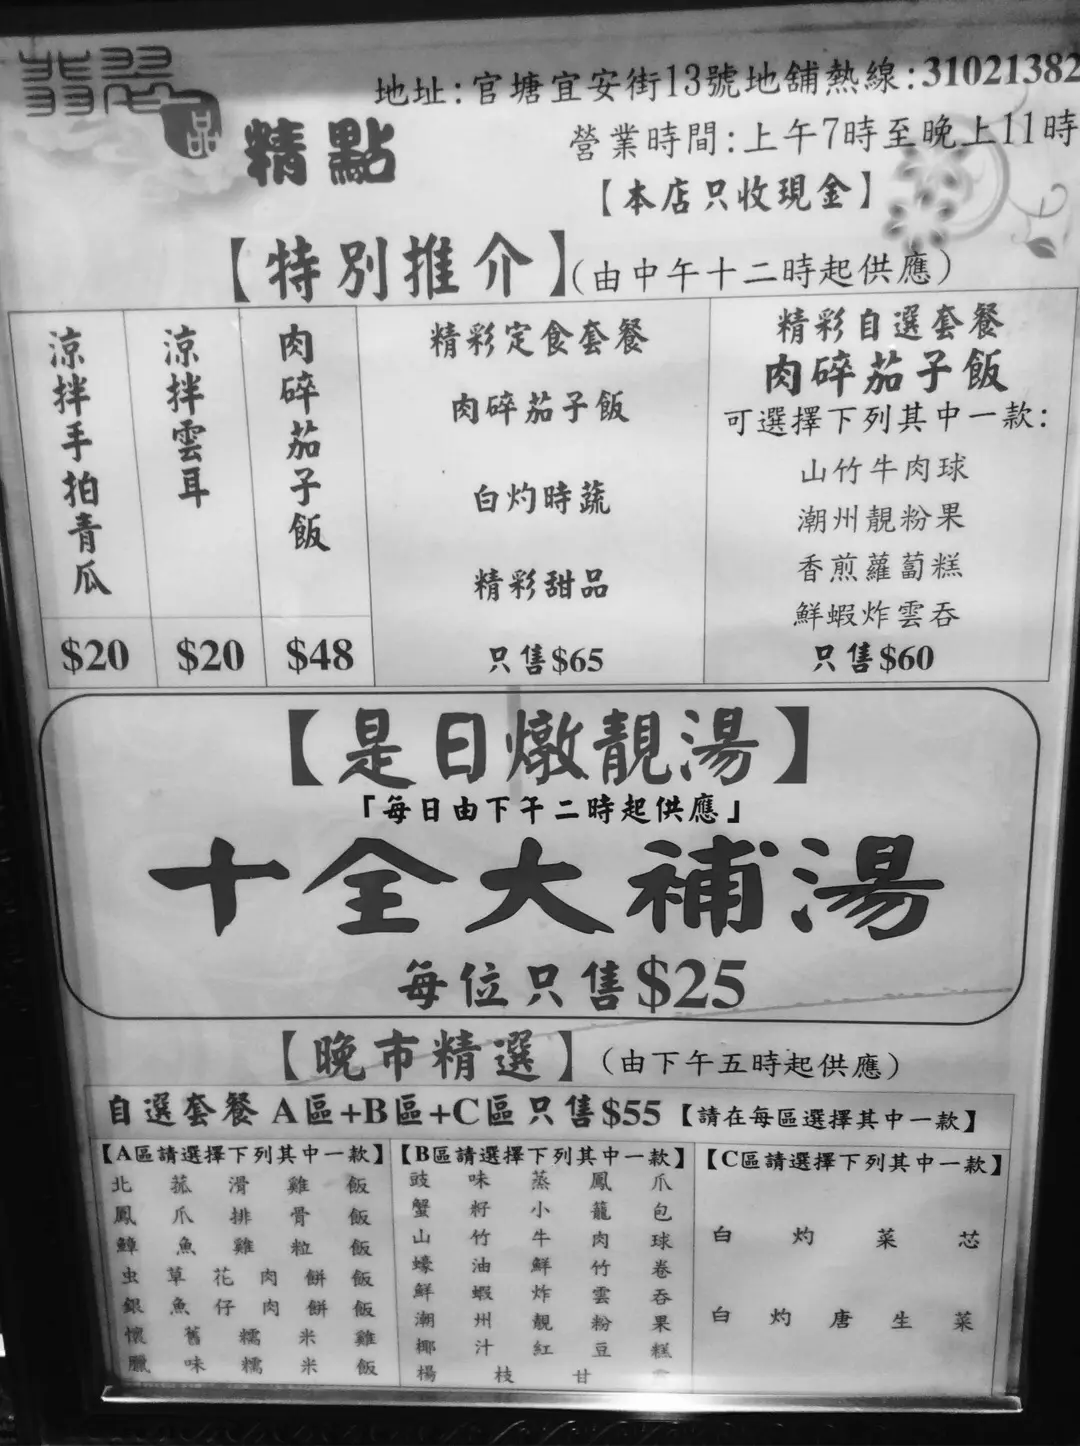 翡翠
一品
精點
地址:官塘宜安街13號地舖熱線:31021382
營業時間:上午7時至晚上11時
【本店只收現金】
【特別推介】(由中午十二時起供應)
涼拌手拍青瓜
$20
涼拌雲耳
$20
肉碎茄子飯
$48
精彩定食套餐
肉碎茄子飯
白灼時蔬
精彩甜品
只售$65
精彩自選套餐
肉碎茄子飯
可選擇下列其中一款:
山竹牛肉球
潮州靚粉果
香煎蘿蔔糕
鮮蝦炸雲吞
只售$60
【是日燉靚湯】
「每日由下午二時起供應」
十全大補湯
每位只售$25
【晚市精選】(由下午五時起供應)
自選套餐 A區+B區+C區只售$55【請在每區選擇其中一款】
【A區請選擇下列其中一款】
北菰滑雞飯
鳳爪排骨飯
鱆魚雞粒飯
虫草花肉餅飯
銀魚仔肉餅飯
懷舊糯米雞
臘味糯米飯
【B區請選擇下列其中一款】
豉味蒸鳳爪
蟹籽小籠包
山竹牛肉球
蠔油鮮竹卷
鮮蝦炸雲吞
潮州靚粉果
椰汁紅豆糕
楊枝甘
【C區請選擇下列其中一款】
白灼菜芯
白灼唐生菜